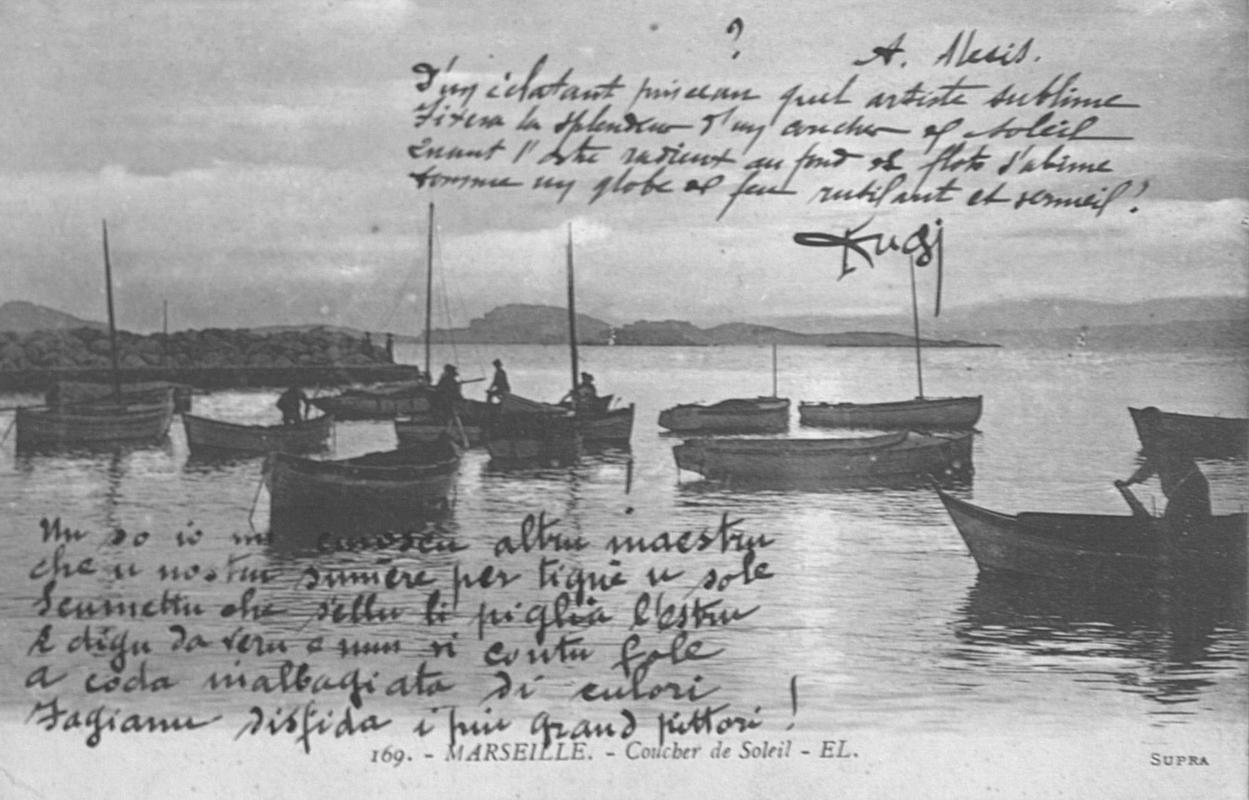 ?
A. Alesis.
D'un éclatant pinceau quel artiste sublime
Fixera la splendeur d'un coucher de soleil
Quant l'astre radieux au fond des flots s'abime
comme un globe de feu rutilant et vermeil?
Nu so io nu cunoscu altru maestru
che u nostru sumiere per tigne u sole
Scumettu che s'ellu li piglia l'estru
E digu da veru e nun vi contu fole
A coda malbagiata di culori
Fagianu disfida i piu grand pittori!
169. - MARSEILLE. - Coucher de Soleil - EL.
SUPRA